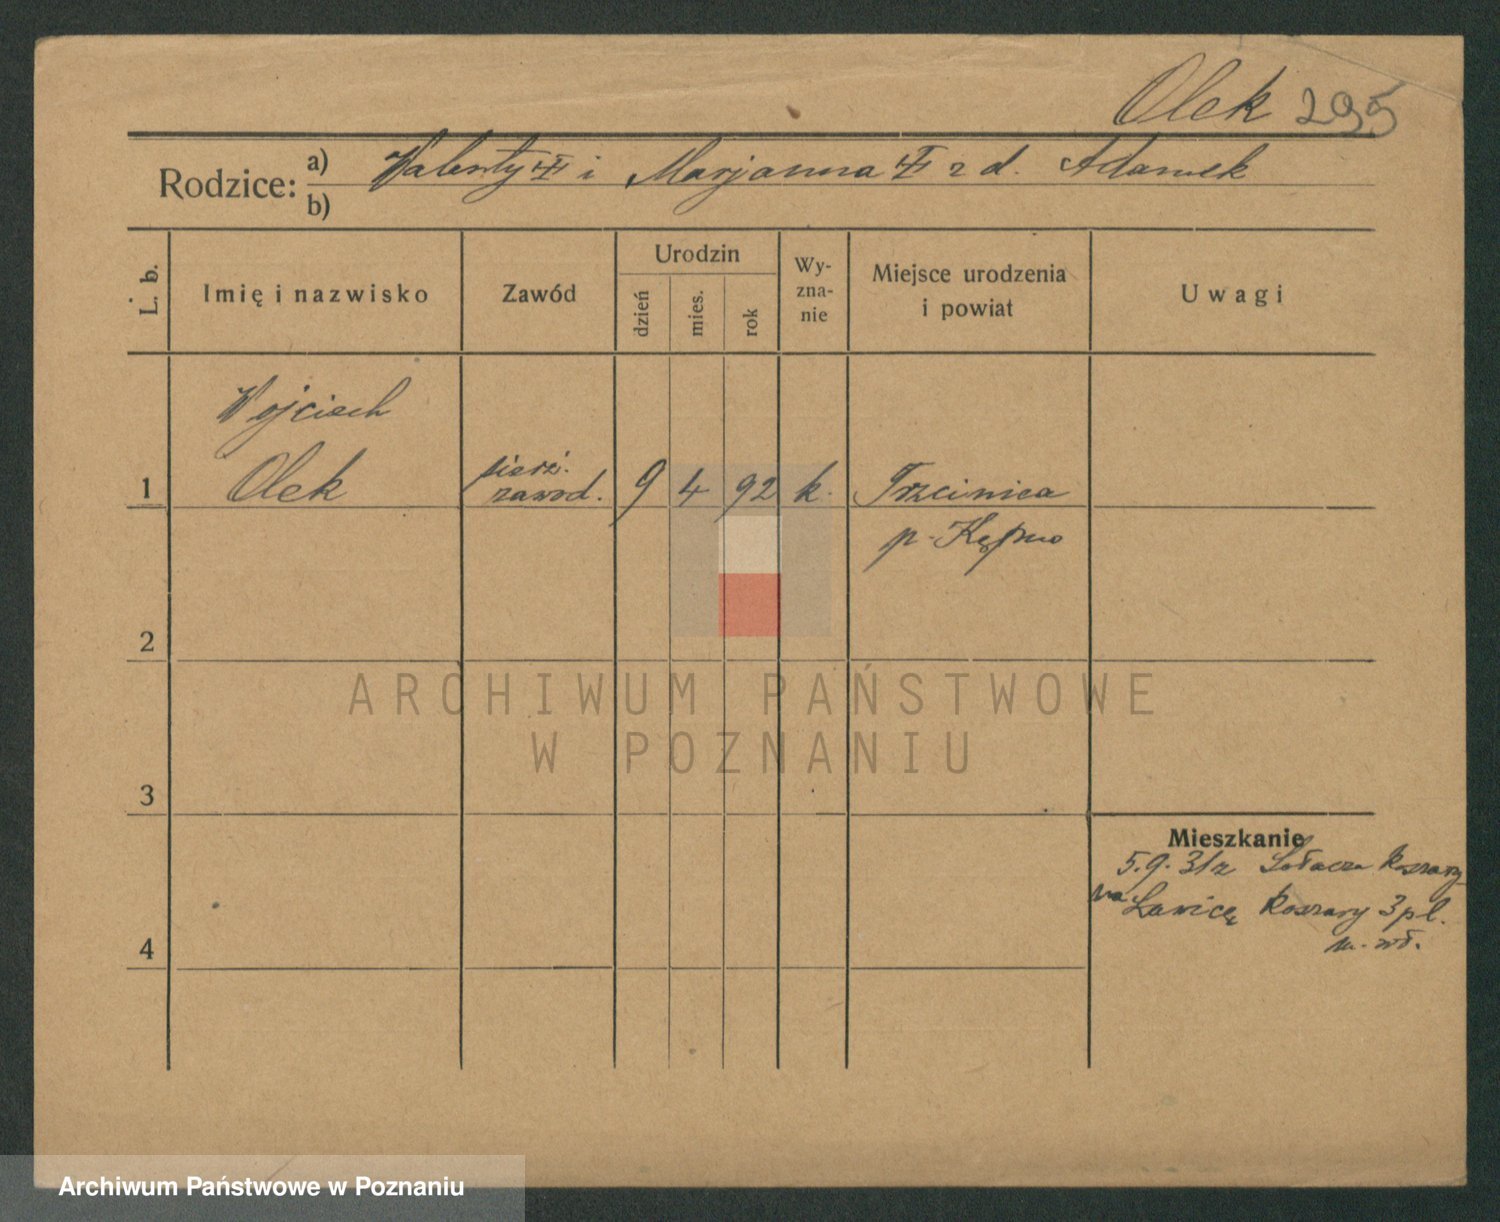 Olek 295
Rodzice: a) Walenty i Marjanna z d. Adamek
b)
L. b.
Imię i nazwisko
Zawód
Urodzin
dzień
mies.
rok
Wy-
zna-
nie
Miejsce urodzenia
i powiat
Uwagi
Wojciech
1 Olek sierż. zawod. 9 4 92 k. Trzcinica
p. Kępno
2
3
4
Mieszkanie
5.9.31 z Sołacza Koszary
na Ławicę Koszary 3 pl.
m. wł.
ARCHIWUM PAŃSTWOWE
W POZNANIU
Archiwum Państwowe w Poznaniu